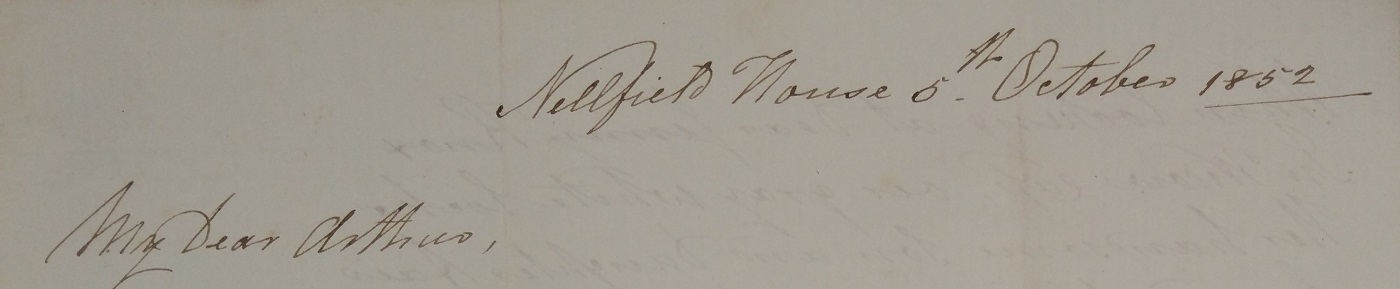 Nellfield House 5th October 1852
My Dear Arthur,